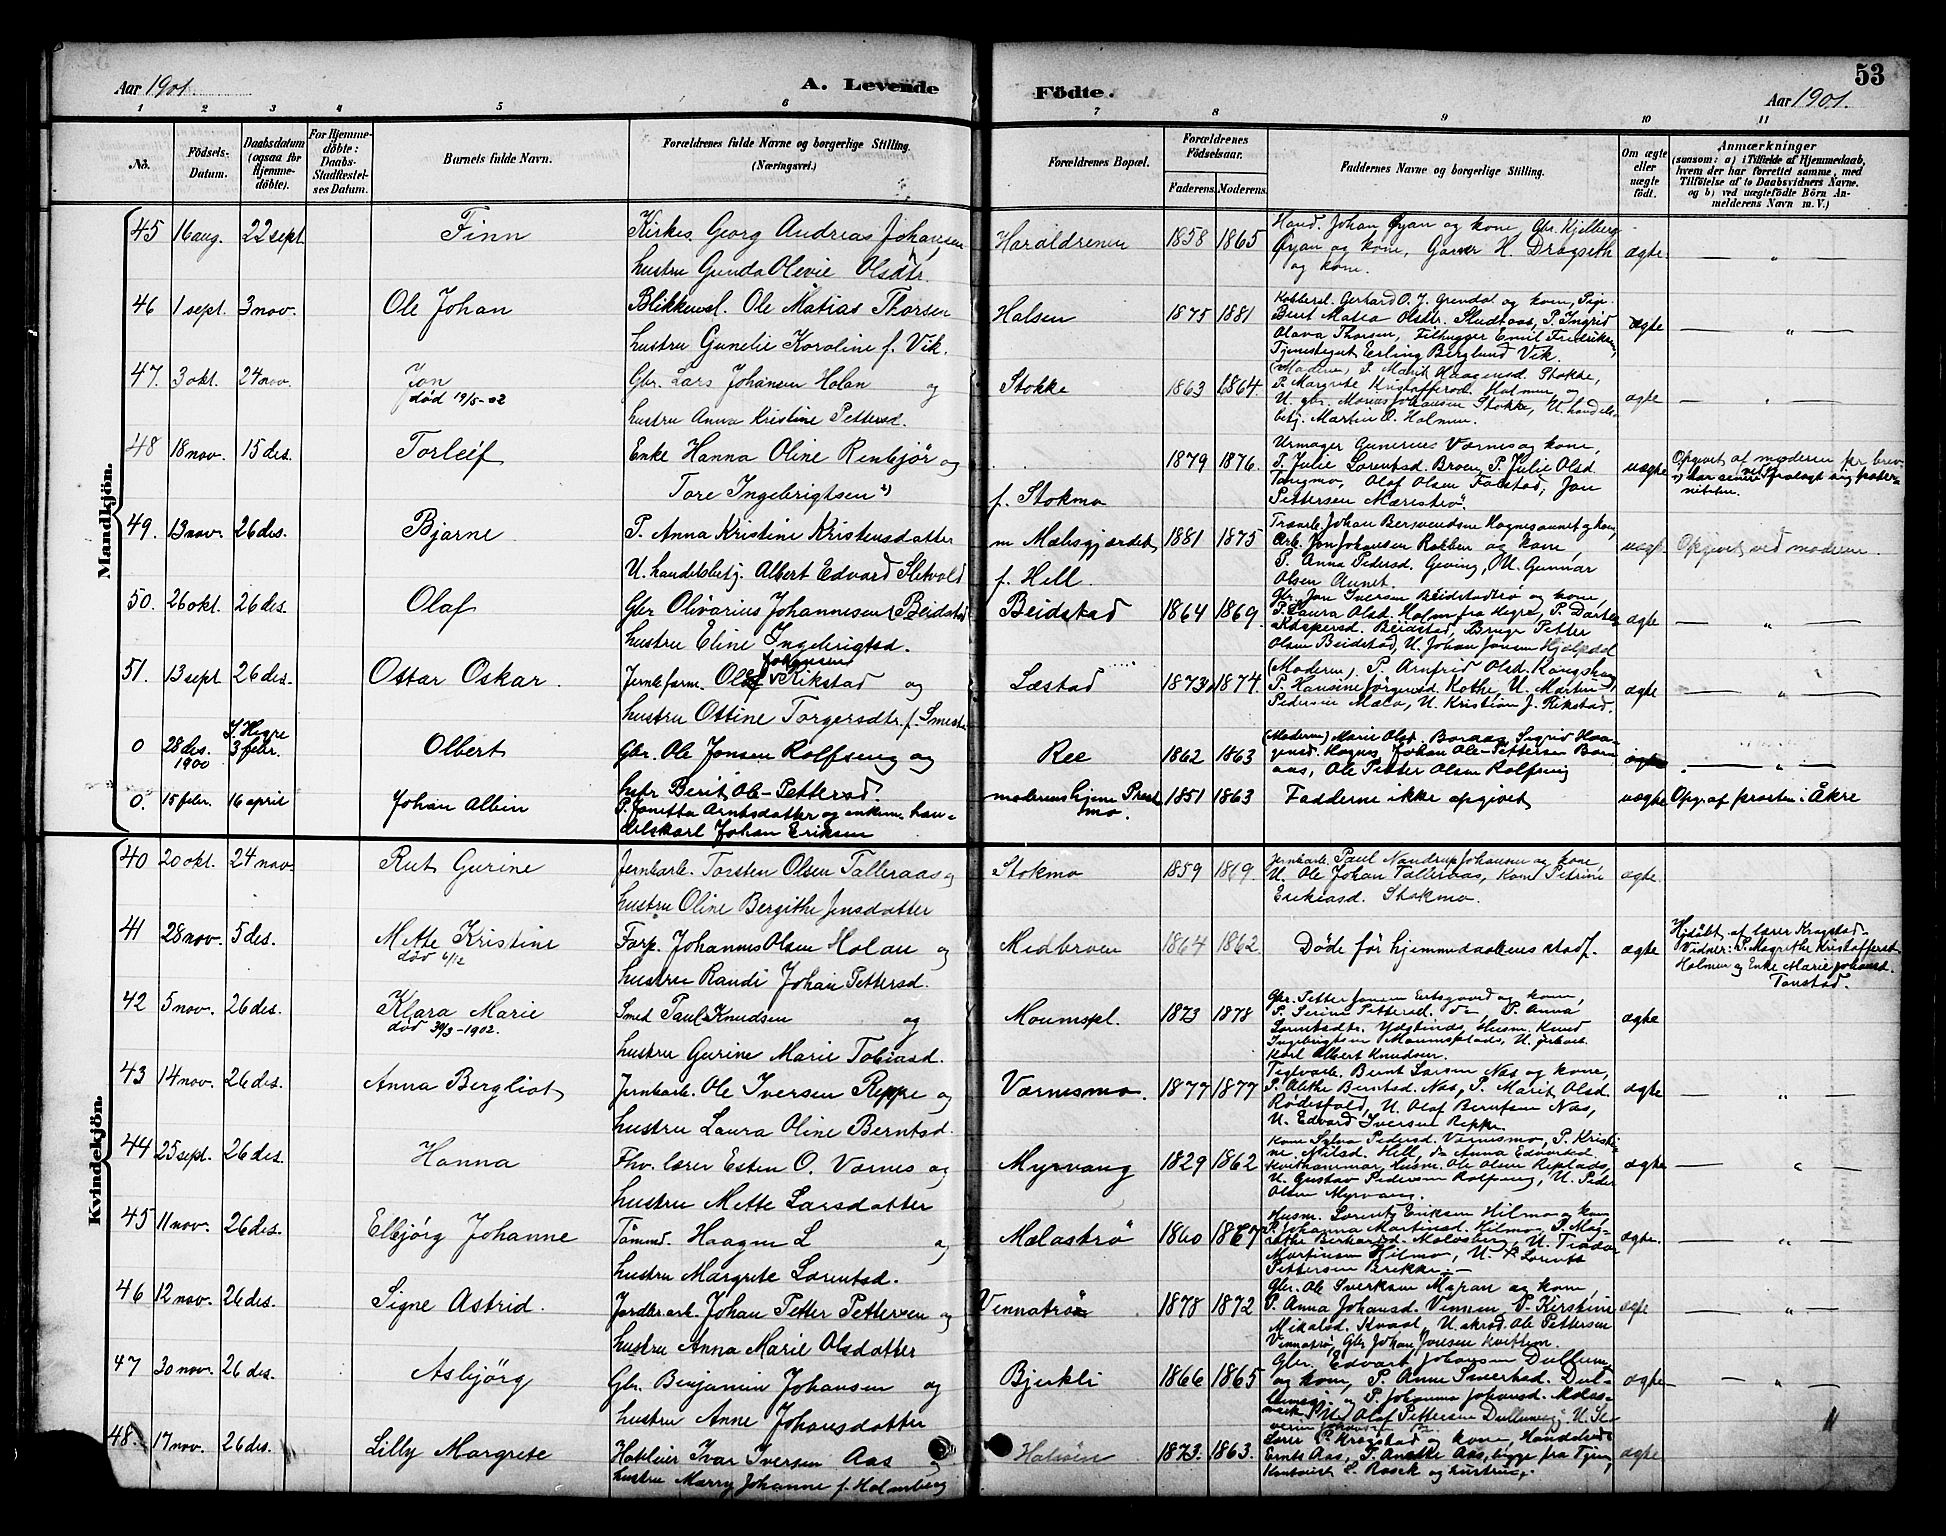 53
Aar 1901.
A. Levende
Födte.
Aar 1901.
1 2 3 4 5 6 7 8 9 10 11
No.
Födsels-
Datum.
Daabsdatum
(ogsaa for
Hjemme-
döbte).
For Hjemme-
döbte:
Daabs-
Stadfæstel-
ses Datum.
Barnets fulde Navn.
Forældrenes fulde Navne og borgerlige Stilling.
(Næringsvei.)
Forældrenes Bopæl.
Forældrenes
Födselsaar.
Faderens.
Moderens.
Faddernes Navne og borgerlige Stilling.
Om ægte
eller
uægte
födt.
Anmærkninger
(saasom: a) i Tilfælde af Hjemmedaab,
hvem der har forrettet samme, med
Tilföielse af to Daabsvidners Navne.
og b) ved uægtefödte Börn An-
melderens Navn m. V.)
Mandkjön.
45 16 aug. 22 sept. Finn
Kirkes. Georg Andreas Johansen
hustru Gunda Olevie Olsdtr.
1858 1865
Hand. Johan Øyan og kone, Gbr. Kjelberg
Øyan og kone, H. Dragseth
og kone.
ægte
46 1 sept. 3 nov. Ole Johan
Blikkensl. Ole Matias Thorsen
hustru Gunelie Karoline f. Vik.
Halsen 1875 1881
Kobbersl. Gerhard O. J. Grendal og kone, Pige
Olava Thorsen, Filhugger Emil Fredriksen
Tjenestegut Erling Berglund Vik.
ægte
47. 3 okt. 24 nov. Jon
død 19/5-02
Gbr. Lars Johansen Holan og
hustru Anna Kristine Pettersd.
Stokke 1863 1864
(Moderen), P. Marit Haagensd. Stokke,
P. Margrete Kristofferd. Holmen og
U. gbr. Marius Johansen Stokke, U. handels-
betj. Martin O. Holmen.
ægte
48 18 nov. 15 des. Torleif
Enke Hanna Oline Renbjør og
Tore Ingebrigtsen
f. Stokmo 1879 1876
Urmager Gunerius Værnes og kone,
P. Julie Lorentsd. Broen, P. Julie Olsd.
Tangmo, Olaf Olsen Farstad, Jon
Pettersen Mærestrø.
uægte
Opgivet af moderen pr. brev.
har senere fralagt sig pater-
niteten.
49. 13 nov. 26 des. Bjarne
P. Anna Kristine Kristensdatter
U. handelsbetj. Albert Edvard Sletvold
m Mælsgjærdet
f. Hell.
1881 1875
Træarb. Johan Bersvendsen Hognesaunet og kone,
Arb. Jon Johansen Rokben og kone,
P. Anna Pedersd. Geving, U. Gunnar
Olsen Aunet.
uægt
Opgivet ved moderen.
50. 26 okt. 26 des. Olaf
Gbr Olivarius Johannesen Beidstad
hustru Eline Ingebrigtsd.
Beidstad 1864 1869.
Gbr. Jon Iversen Beidstadtrø og kone,
P. Laura Olsd. Holm fra Hegre, P. Dorte
Kaspersd. Beidstad, Petter
Olsen Beidstad, U. Johan Jonsen Hjelpdal
ægte
51. 13 sept 26 des. Ottar Oskar.
Johansen
Jernb.form. Olaf Rikstad og
hustru Ottine Torgersdtr. f.
Læstad 1873 1874.
(Moderen), P. Arnfrid Olsd.
P. Hansine Jørgensd. Kothe, U. Martin
Pedersen Mæla, U. Kristian J. Rikstad.
ægte
0 28 des.
1900
I Hegre
3 febr. Olbert
Gbr. Ole Jonsen Rolfseng og
hstr Berit Ole-Pettersd.
Ree 1862 1863
(Moderen) Marie Olsd. Boraas, Sigrid Haa-
gensd. Hognes, Johan Ole-Pettersen Bor-
aas, Ole Petter Olsen Rolfseng
ægte
0. 15 febr. 16 april Johan Albin
P. Jonetta Arntsdatter og enkem. han-
delskarl Johan Eriksen
moderens hjem Prest-
mo. 1851 1863
Fadderne ikke opgivet
uægte
Opg. af prosten i Åkre
Kvindekjön.
40 20 okt. 24 nov. Rut Gurine
Jernbarb. Torsten Olsen Talleraas og
hustru Oline Bergithe Jensdatter
Stokmo 1859 1869.
Jernbarb. Paul Nandrup Johansen og kone,
U. Ole Johan Talleraas, kone Petrine
Eriksd. Stokmo.
ægte.
41 28 nov. 5 des. Mette Kristine
død 6/12
Forp. Johannes Olsen Holan og
hustru Randi Johan Pettersd.
Midbroen 1864 1862
Døde før hjemmedaabens stadf.
ægte
Hjdøbt af lærer Kragstad.
Vidner: P. Magrethe Kristoffersd.
Holmen og Enke Marie Johansd.
42 5 nov. 26 des. Klara Marie
død 30/3-1902.
Smed Paul Knudsen og
hustru Gurine Marie Tobiasd.
Moumspl. 1873 1878
Gbr. Petter Jonsen Ertsgaard og kone,
P. Serine Pettersd. P. Anna
Lorentsdtr. Ydstinds, Husm. Knud
Ingebrigtsen Moumsplads, U.
Karl Albert Knudsen.
ægte
43 14 nov. 26 des. Anna Bergliot
Jernbarb. Ole Iversen Reppe og
hustru Laura Oline Berntsd.
Værnesmo. 1877 1877
Teglv.arb. Bernt Larsen Næs og kone,
P. Alethe Berntsd. Næs, P. Marit Olsd.
Rødesfald, U. Olaf Berntsen Næs,
U. Edvard Iversen Reppe
ægte
44 25 sept. 26 des. Hanna
Fhv. lærer Esten O. Værnes og
hustru Mette Larsdatter
Myrvang 1829 1862
Kone Sylva Pedersd. Værnesmo, P. Kristi-
ne Nilsd. Hell, do Anna Edvardsd.
Kvithammar, Husm. Ole Olsen
U. Gustav Pedersen Rolfseng, U. Peder
Olsen Myrvang.
ægte
45 11 nov. 26 des. Elbjørg Johanne
Tømmd. Haagen L og
hustru Margrete Lorentsd.
Mælastrø 1860 1867
Husm. Lorents Eriksen Hilmo og kone
P. Johanna Martinsd. Hilmo, P. Mag-
rethe Berhardsd. U. Teodor
Martinsen Hilmo, U. Lorents
Pettersen Brekke
ægte.
46 12 nov. 26 des. Signe Astrid.
Jordbr.arb. Johan Petter Pettersen og
hustru Anna Marie Olsdatter
Vennatrø 1878 1872
Gbr. Ole Sverksen Myran og kone,
P. Anna Johansd. Vennen, P. Kirstine
Mikalsd. Kvaal, U. skræd. Ole Pettersen
Vennatrø, Gbr Johan Jonsen Kvithem.
ægte
47 30 nov. 26 des. Asbjørg
Gbr. Benjamin Johansen og
hustru Anne Johansdatter
Bjerkli 1866 1865
Gbr. Edvart Johansen Dullum
og kone, P. Anne Sivertsd. Dul-
P. Johanna Johansd. Molas-
U. Olaf Pettersen
ægte
48. 17 nov. 26 des. Lilly Margrete
Hoteleier Ivar Iversen Aas og
hustru Marry Johanne f. Holmberg
Halsøen 1873. 1863.
Lærer P. Kragstad og kone, Handelsb.
Ernts Aas, F. Anethe Aas, begge fra Tyen,
Kontorist L. Rosek og hustru.
ægte